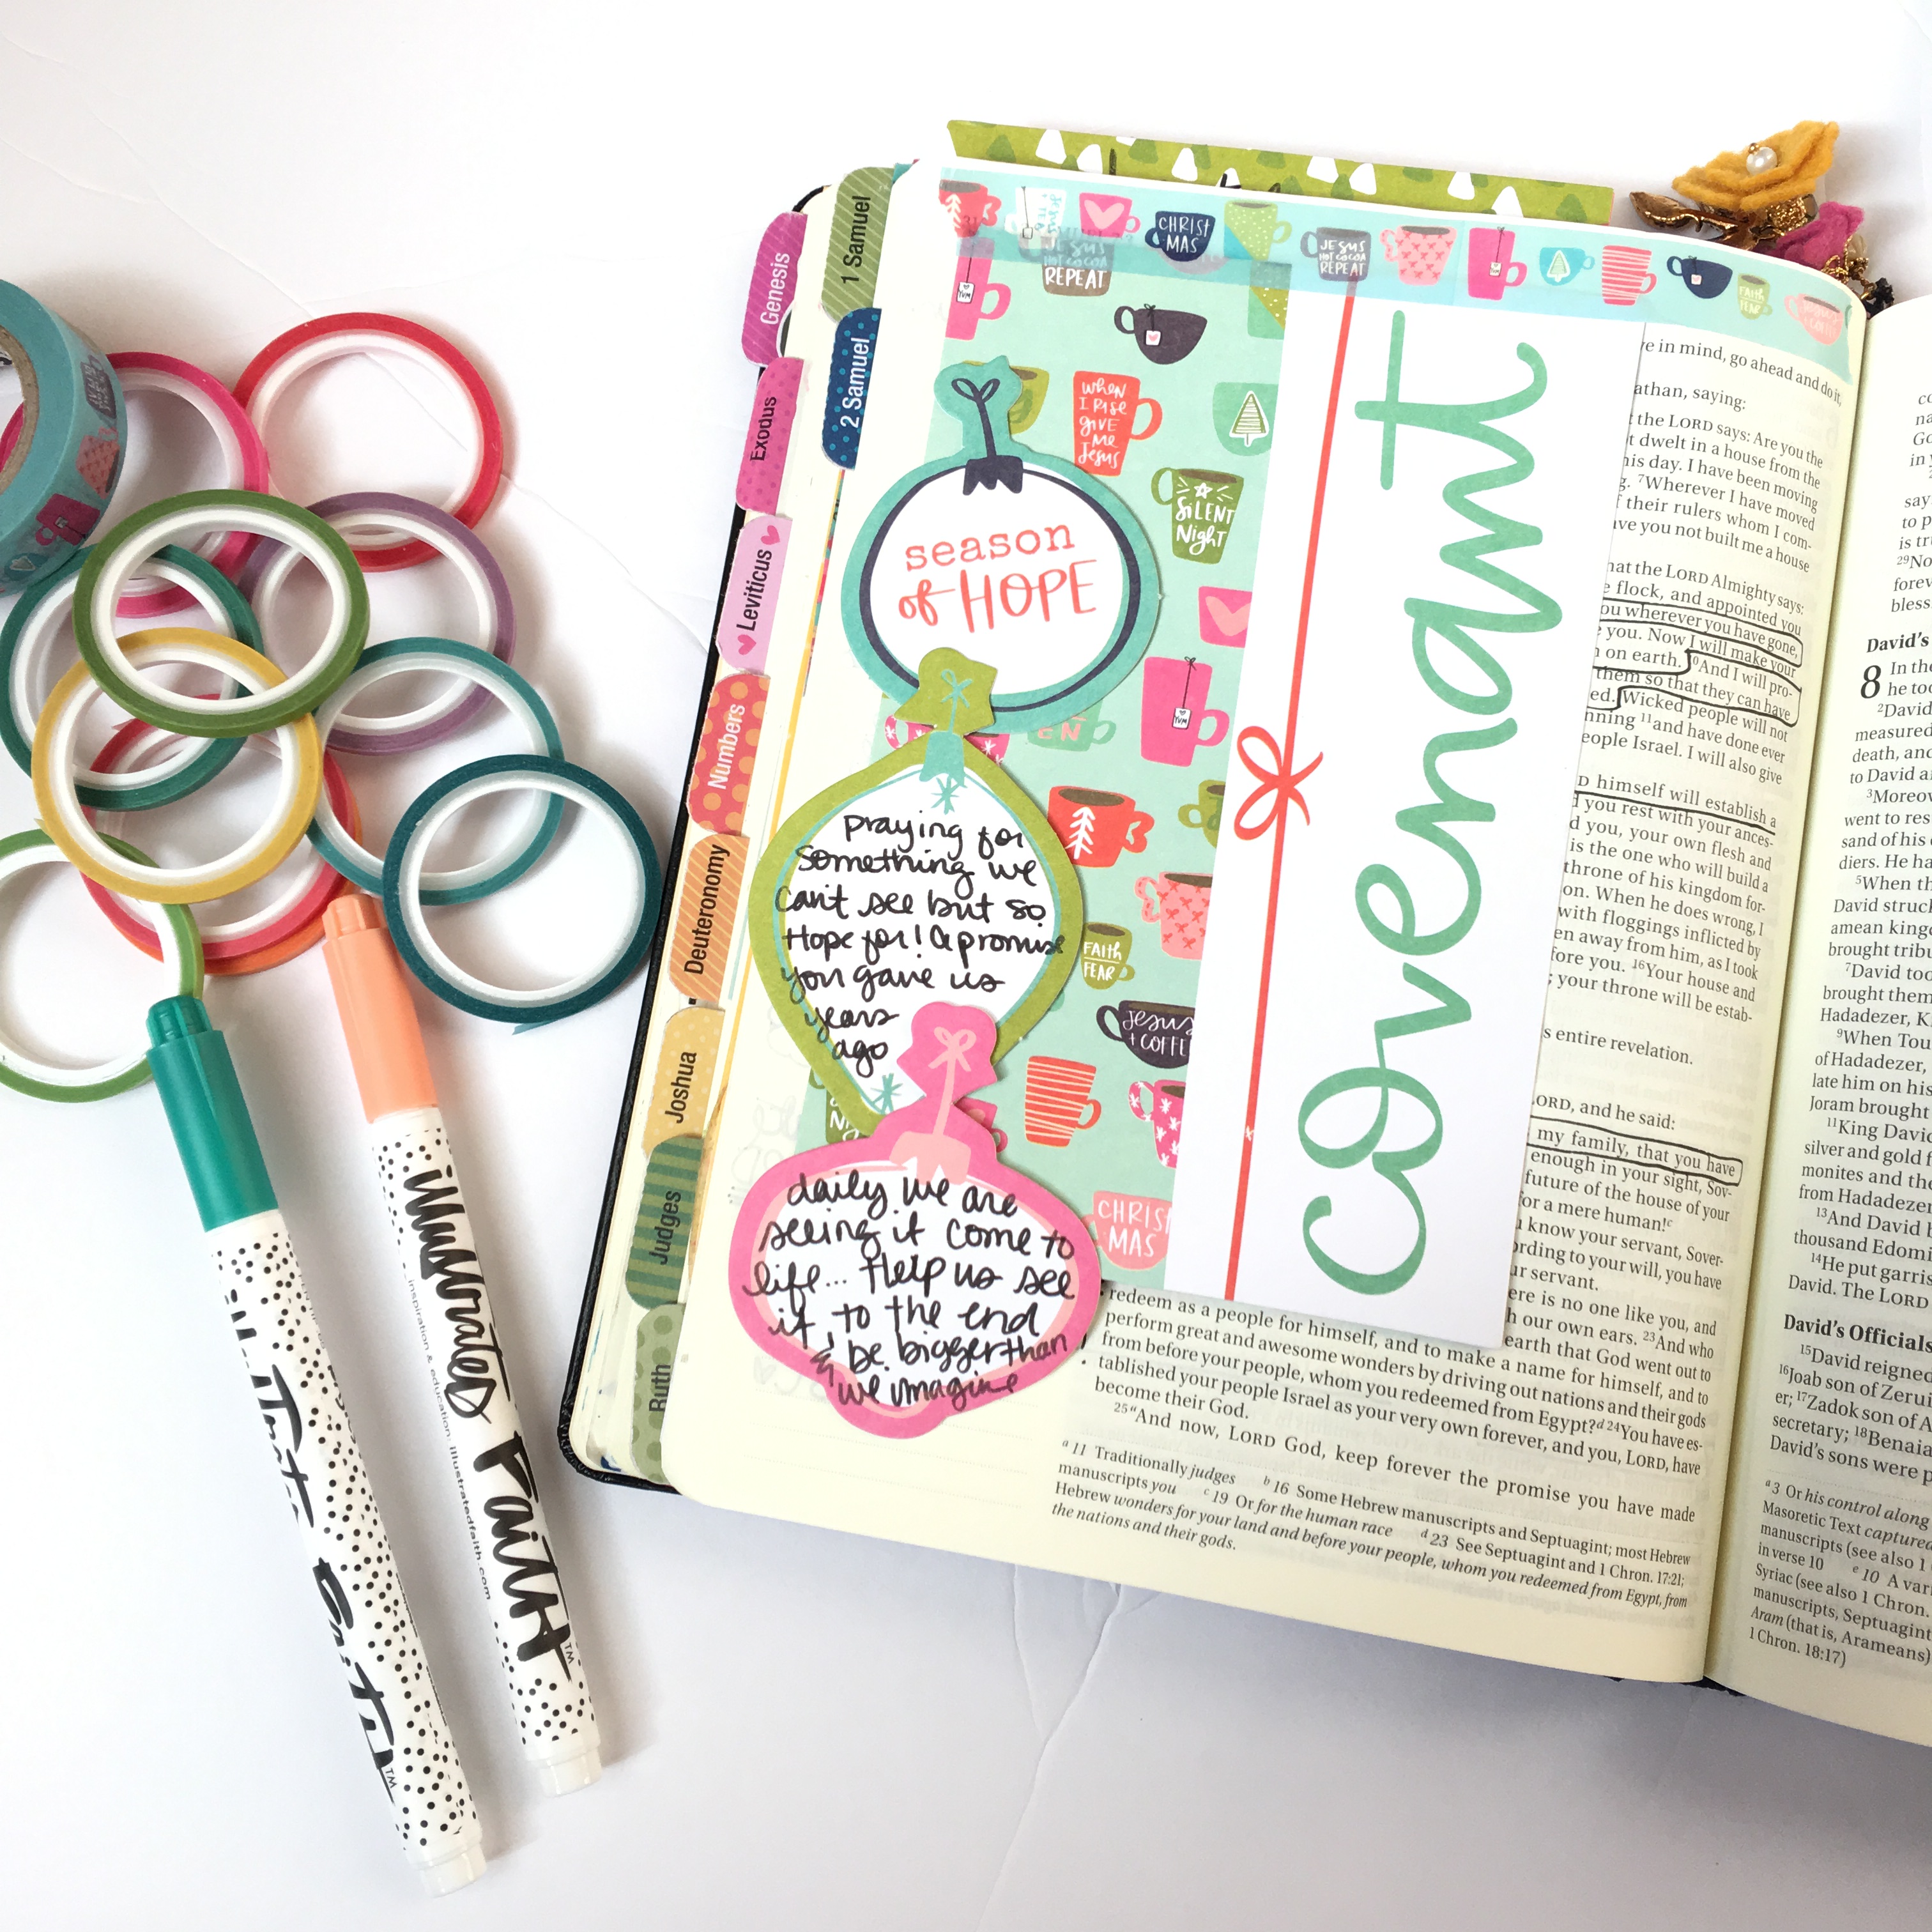 Genesis
Exodus
Leviticus
Numbers
Deuteronomy
Joshua
Judges
Ruth
1 Samuel
2 Samuel
CHRIST
MAS
JESUS
HOT COCOA
REPEAT
FAITH
FEAR
JESUS
HOT COCOA
REPEAT
YUM
when
I RISE
GIVE
ME
Jesus
SILENT
Night
YUM
FAITH
FEAR
Jesus
+ COFFE
CHRIST
MAS
season
of HOPE
praying for
something we
can't see but so
Hope for! a promise
you gave us
years
ago
daily we are
seeing it come to
life... Help us see
it, to the end
& be bigger than
we imagine
covenant
ve in mind, go ahead and do it,
athan, saying:
the LORD says: Are you the
t dwelt in a house from the
his day. I have been moving
g. 7Wherever I have moved
their rulers whom I com-
ave you not built me a house
hat the LORD Almighty says:
e flock, and appointed you
ou wherever you have gone,
you. Now I will make your
on earth. 10And I will pro-
them so that they can have
ed. Wicked people will not
nning 11and have done ever
eople Israel. I will also give
D himself will establish a
d you rest with your ances-
d you, your own flesh and
is the one who will build a
throne of his kingdom for-
on. When he does wrong, I
with floggings inflicted by
en away from him, as I took
fore you. 16Your house and
; your throne will be estab-
s entire revelation.
ORD, and he said:
my family, that you have
enough in your sight, Sov-
future of the house of your
for a mere human!c
u know your servant, Sover-
ording to your will, you have
ur servant.
ere is no one like you, and
h our own ears. 23And who
earth that God went out to
redeem as a people for himself, and to make a name for himself, and to
perform great and awesome wonders by driving out nations and their gods
from before your people, whom you redeemed from Egypt?d 24You have es-
tablished your people Israel as your very own forever, and you, LORD, have
become their God.
25“And now, LORD God, keep forever the promise you have made
a 11 Traditionally judges b 16 Some Hebrew manuscripts and Septuagint; most Hebrew
manuscripts you c 19 Or for the human race d 23 See Septuagint and 1 Chron. 17:21;
Hebrew wonders for your land and before your people, whom you redeemed from Egypt, from
the nations and their gods.
David's
8 In the
he to
2David
measured
death, and
to David a
3Moreov
went to res
sand of his
diers. He ha
5When th
David struck
amean kingd
brought tribu
7David too
brought them
Hadadezer, K
9When Tou
of Hadadezer,
late him on his
Joram brought
11King David
silver and gold f
monites and the
from Hadadezer
13And David b
thousand Edomi
14He put garris
David. The LORD
David's Officials
15David reigned
16Joab son of Zerui
er; 17Zadok son of A
secretary; 18Benaia
David's sons were p
a 3 Or his control along
Masoretic Text captured
manuscripts (see also 1
in verse 10 e 10 A vari
Syriac (see also 1 Chron.
manuscripts, Septuagint
Aram (that is, Arameans)
1 Chron. 18:17)
illustrated Faith™
inspiration & education: illustratedfaith.com